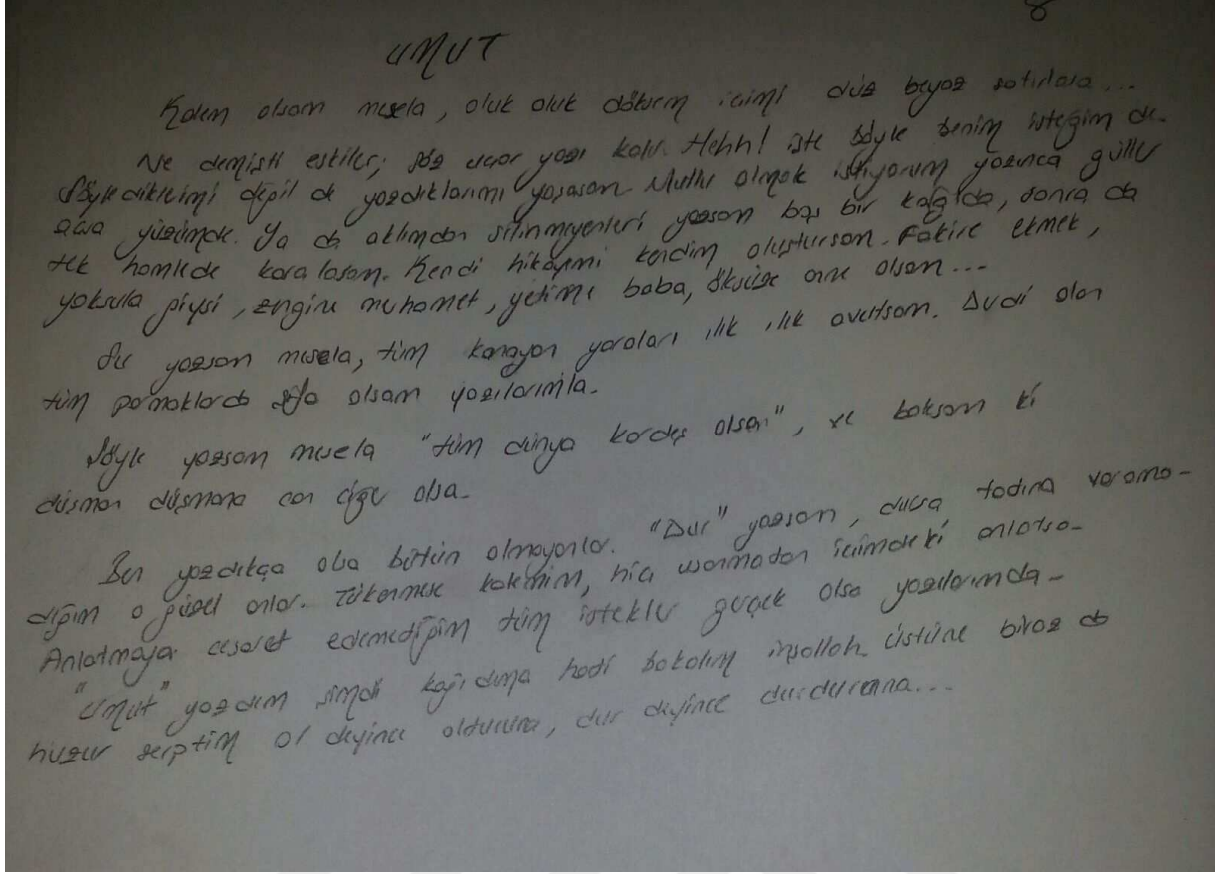 8
UMUT
Kalem olsam mesela, oluk oluk döksem içimi düz beyaz satırlara...
Ne demişti eskiler; söz uçar yazı kalır. Hehh! işte böyle benim isteğim de.
Söylediklerimi değil de yazdıklarımı yaşasam. Mutlu olmak istiyorum yazınca güller
açsa yüzümde. Ya da aklımdan silinmeyenleri yazsam boş bir kağıda, sonra da
tek hamlede karalasam. Kendi hikayemi kendim oluştursam. Fakire ekmek,
yoksula giysi, zengine muhamet, yetime baba, öksüze anne olsam...
Su yazsam mesela, tüm kanayan yaraları ılık ılık avutsam. Dudi olan
tüm parmaklarda şifa olsam yazılarımla.
Söyle yazsam mesela "tüm dünya kardeş olsun", ve baksam ki
düşman düşmana can ciğer olsa.
Ben yazdıkça olsa bütün olmayanlar. "Dur" yazsam, dursa tadına varama-
dığım o güzel anlar. Tükenmese kalemim, hiç usanmadan içimdeki anlatsa.
Anlatmaya cesaret edemediğim tüm istekler gerçek olsa yazılarımda.
"Umut" yazdım şimdi kağıdıma hadi bakalım inşallah. Üstüne biraz da
huzur serptim ol deyince oldurana, dur deyince durdurana...